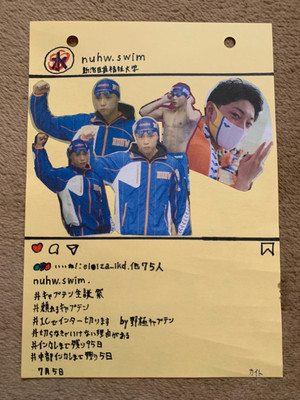 水
nuhw.swim
新潟医療福祉大学
いいね!:eloiza_lkd.他75人
nuhw.swim.
#キャプテン生誕祭
#頼れるキャプテン
#1Cでインター切ります by野極キャプテン
#切らなきゃいけない理由がある
#インカレまで残り95日
#中部インカレまで残り5日
7月5日
カイト